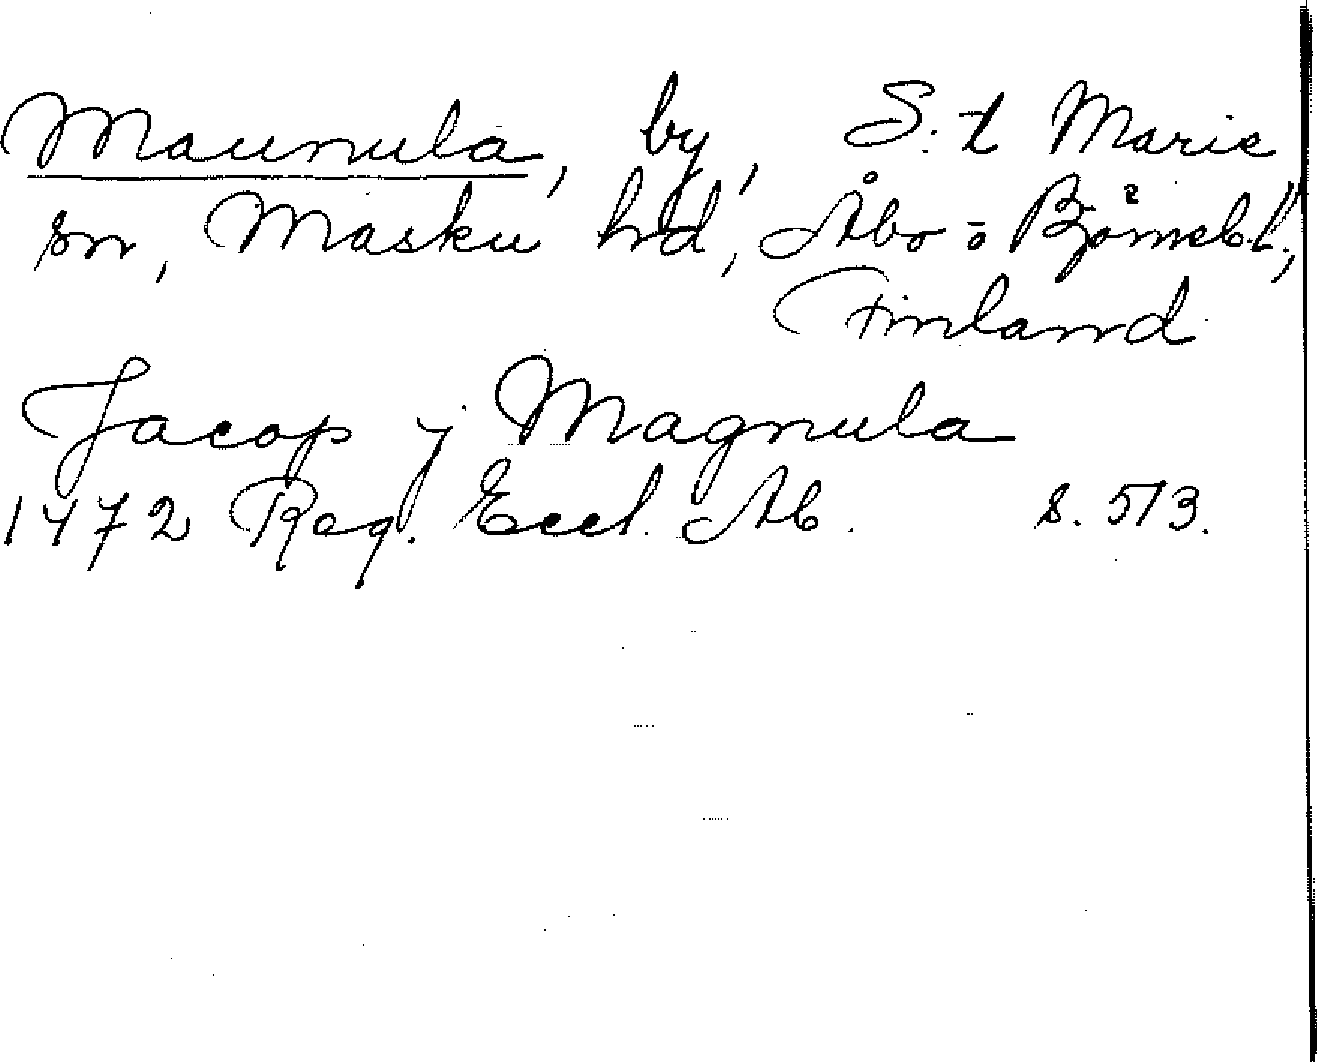 Maunula, by, S:t Marie
sn, Masku hrd, Åbo = Björnebl.,
Finland
Jacop j Magnula
1472 Reg. Eccl. Ab. s. 513.